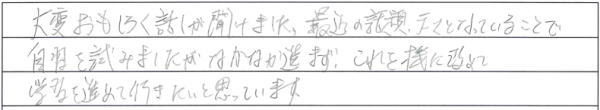 大変おもしろく話しが聞けました。最近の話題、エとなっていることで
自習を試みましたがなかなか進まず、これを機に改めて
学習を進めて行きたいと思っています